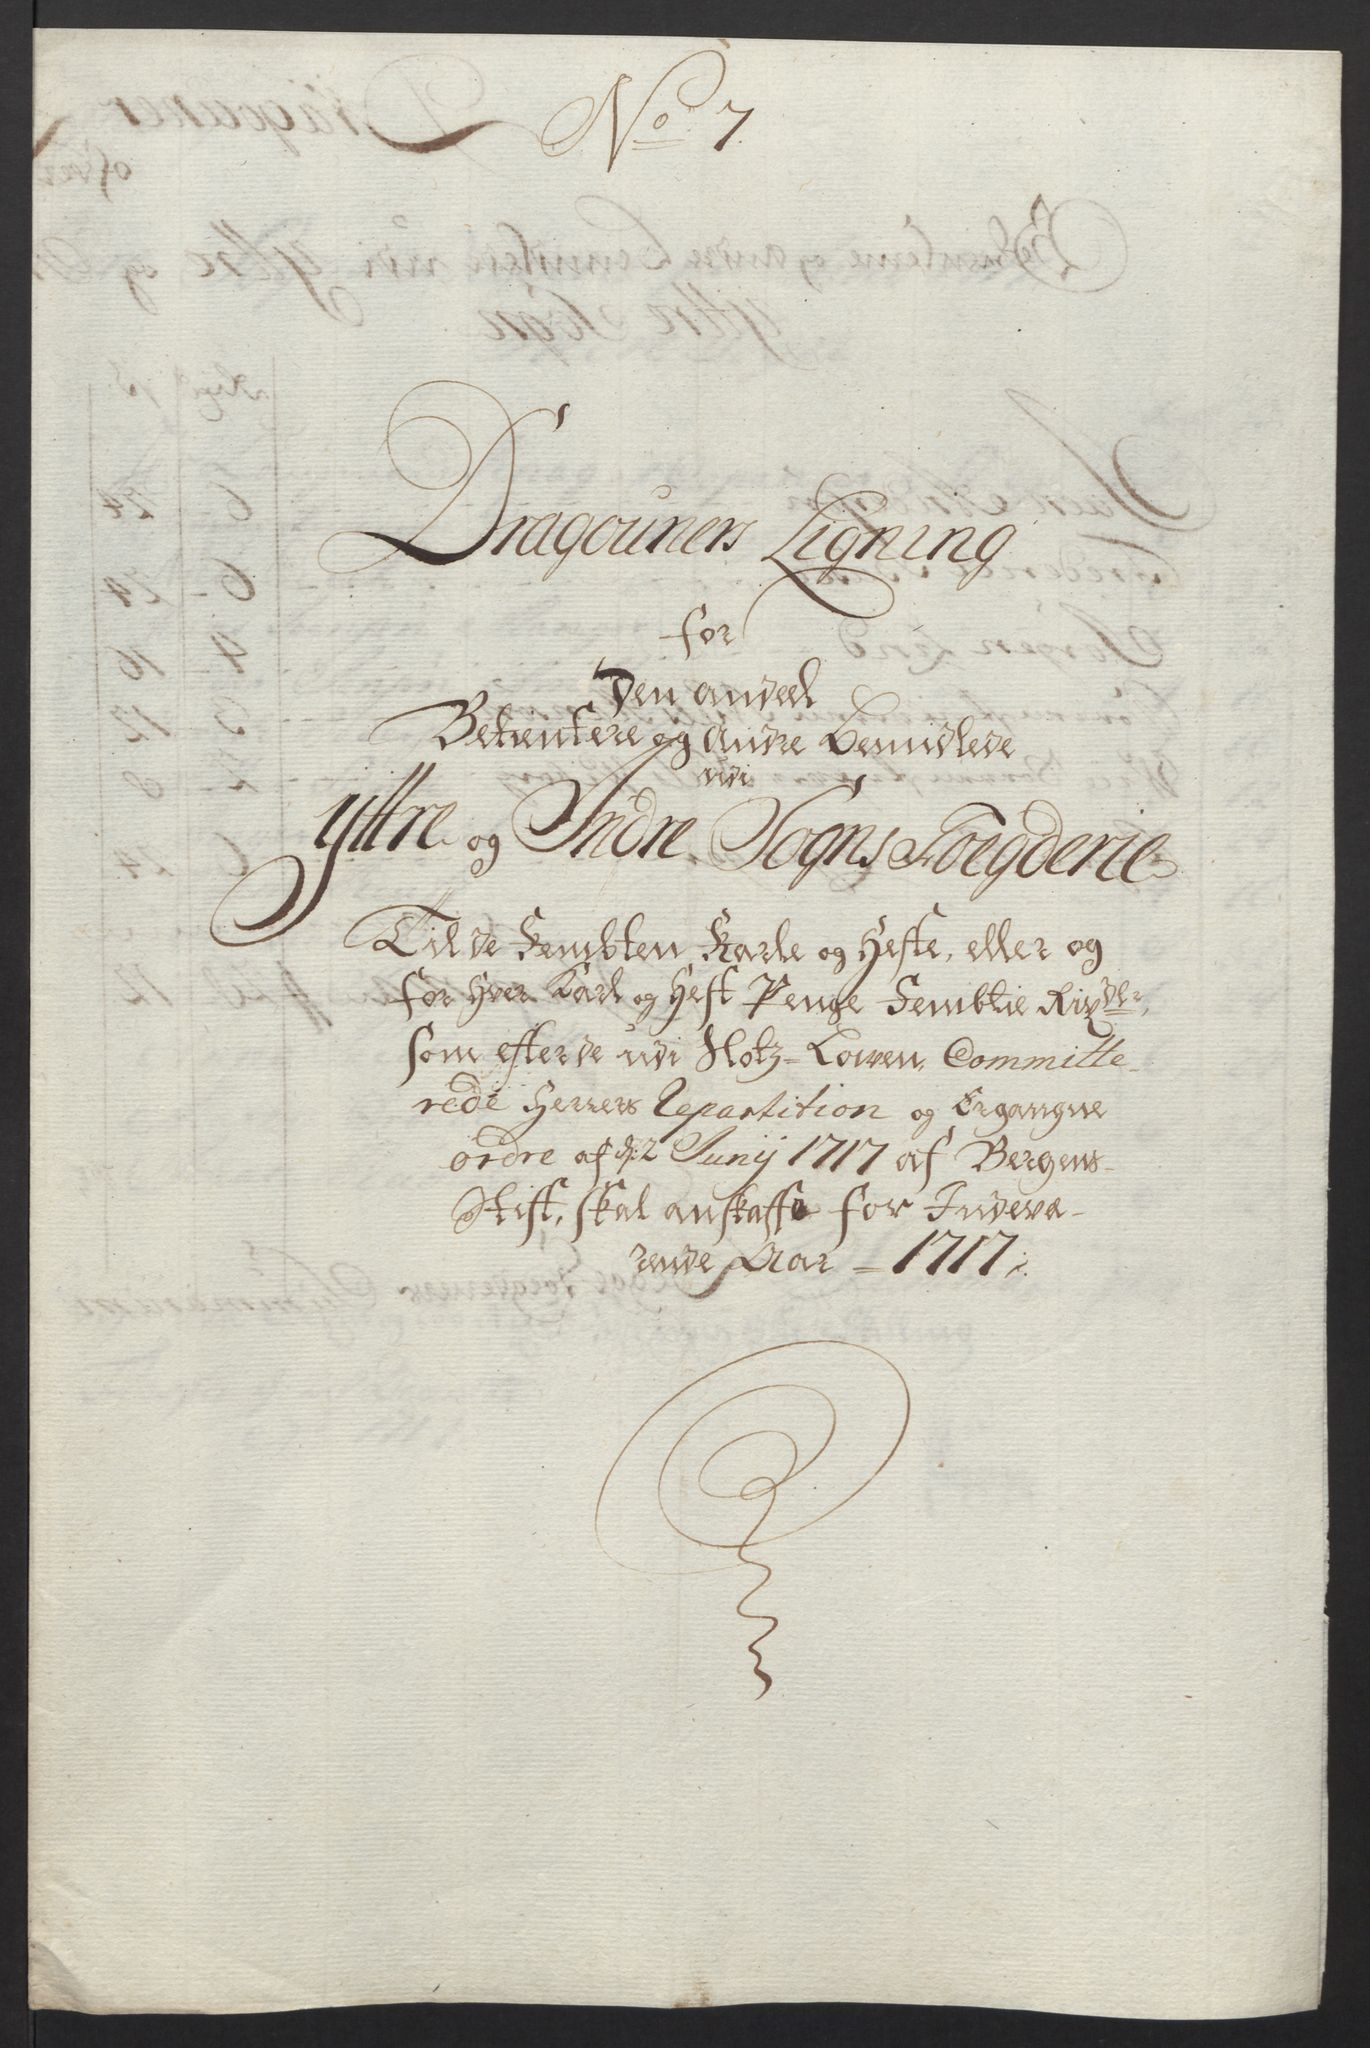 No 7
Dragouners Ligning
for
den andeel
Betientere og andre bemidlede
udi
Yttre og Indre Sogns Foegderie
Til de Fembten Karle og Heste, eller og
for hver Karl og Hest Penge Fembtie Rixdlr,
som efter de udi Slotz-Loven Committe-
rede Herrers Repartition og Ergangne
ordre af d: 2 Junij 1717 af Bergens
Stift, skal anskaffe for Indevæ-
rende Aar - 1717